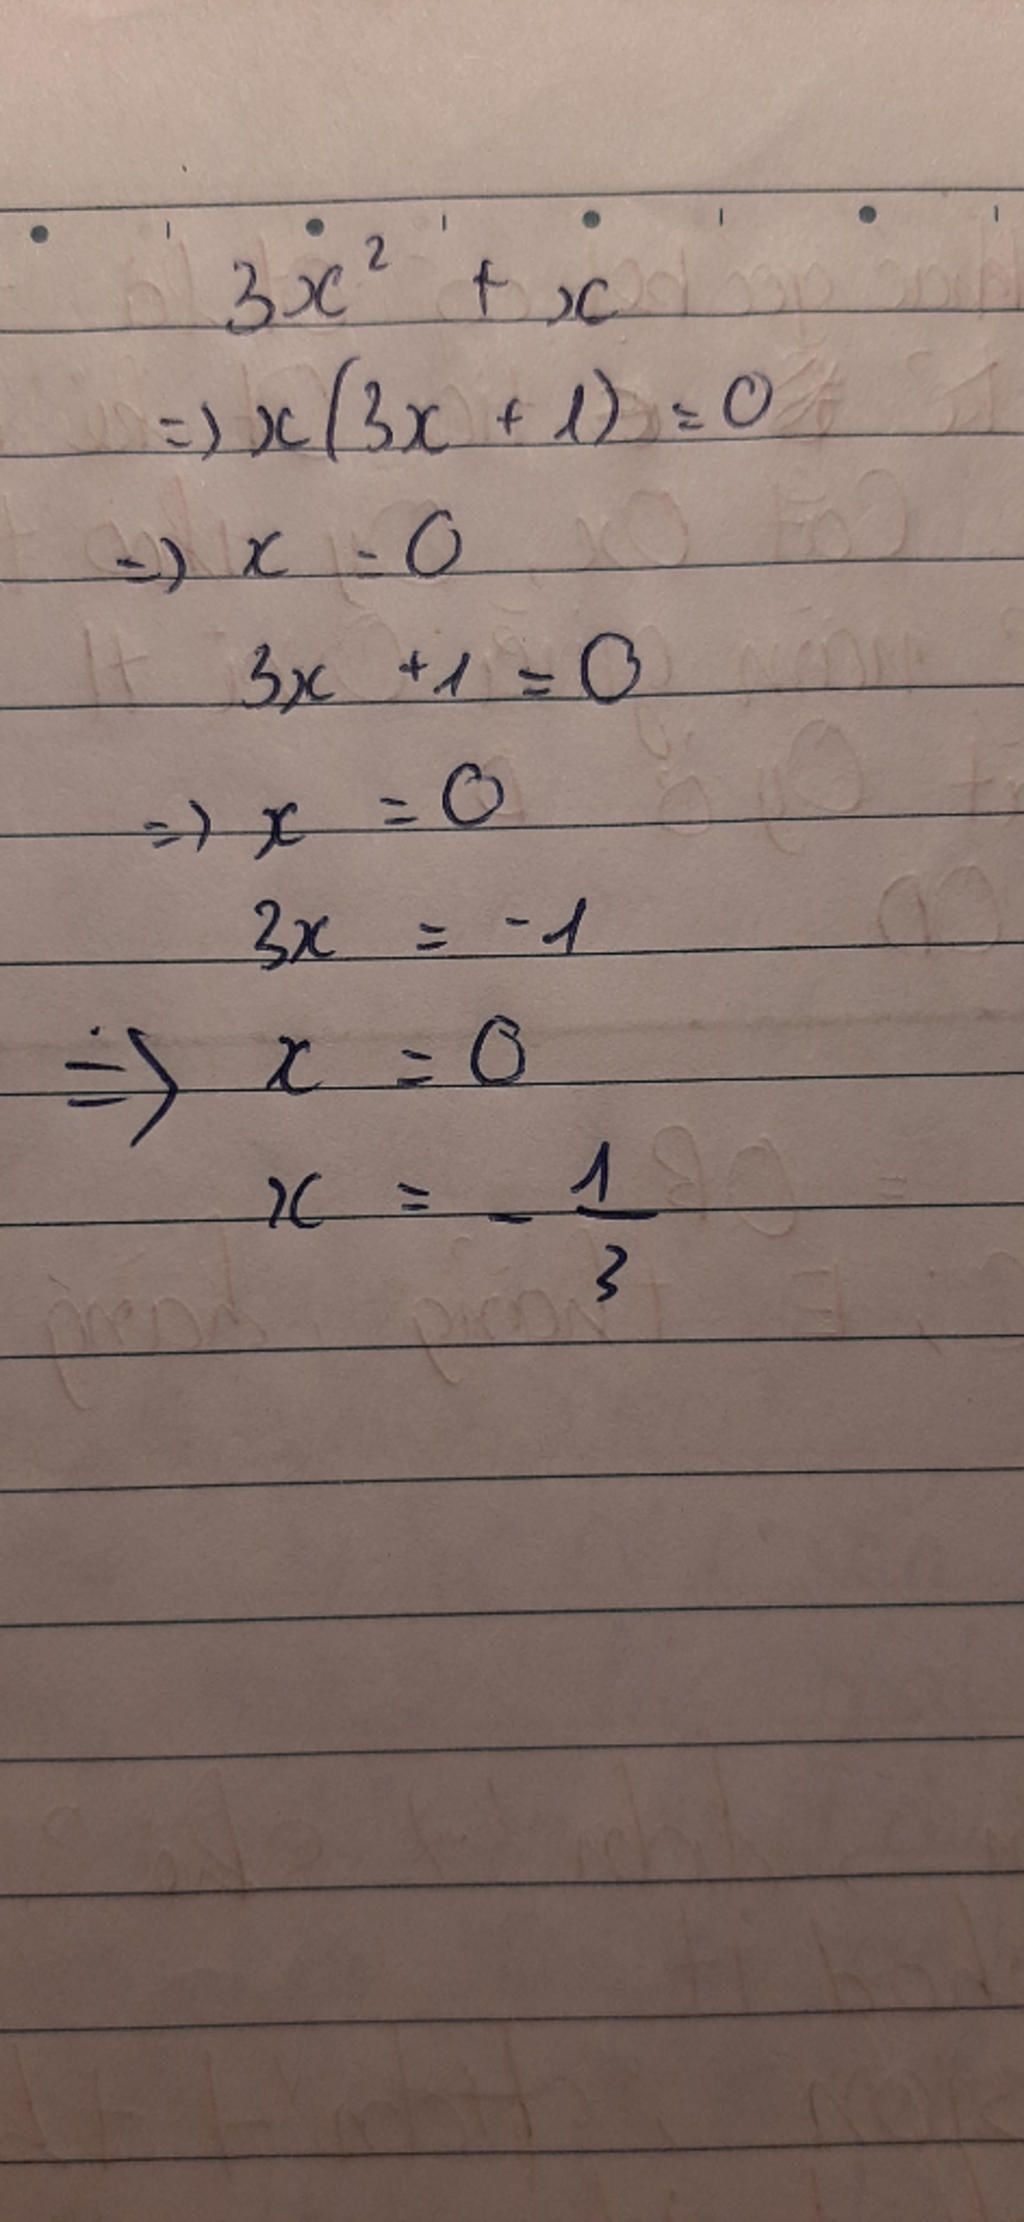 3x² + x
=> x(3x + 1) = 0
=> x = 0
3x + 1 = 0
=> x = 0
3x = -1
=> x = 0
x = - 1/3